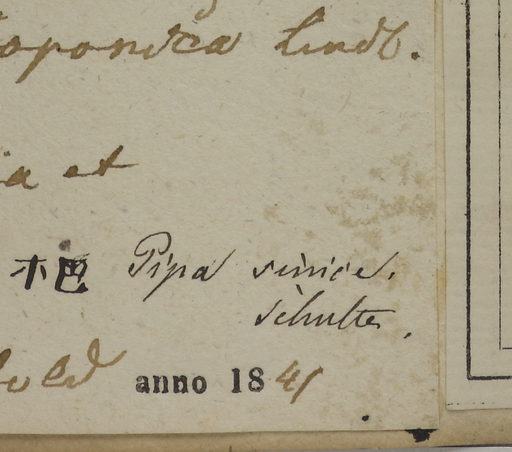 aponica Lindl.
ia et
杷 Pipa sinice.
Schultes.
bold anno 1841